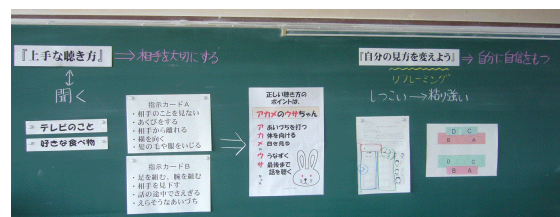 『上手な聴き方』
⇒相手を大切にする
↕
聞く
テレビのこと
好きな食べ物
指示カードA
・相手のことを見ない
・あくびをする
・相手から離れる
・横を向く
・髪の毛や服をいじる
指示カードB
・足を組む、腕を組む
・相手を見下す
・話の途中でさえぎる
・えらそうなあいづち
⇒
正しい聴き方の
ポイントは、
アカメのウサちゃん
ア あいづちを打つ
カ 体を向ける
メ 目を見る
ウ うなずく
サ 最後まで
話を聴く
『自分の見方を変えよう』
⇒自分に自信をもつ
リフレーミング
しつこい→粘り強い
D C
B A
D C
B A